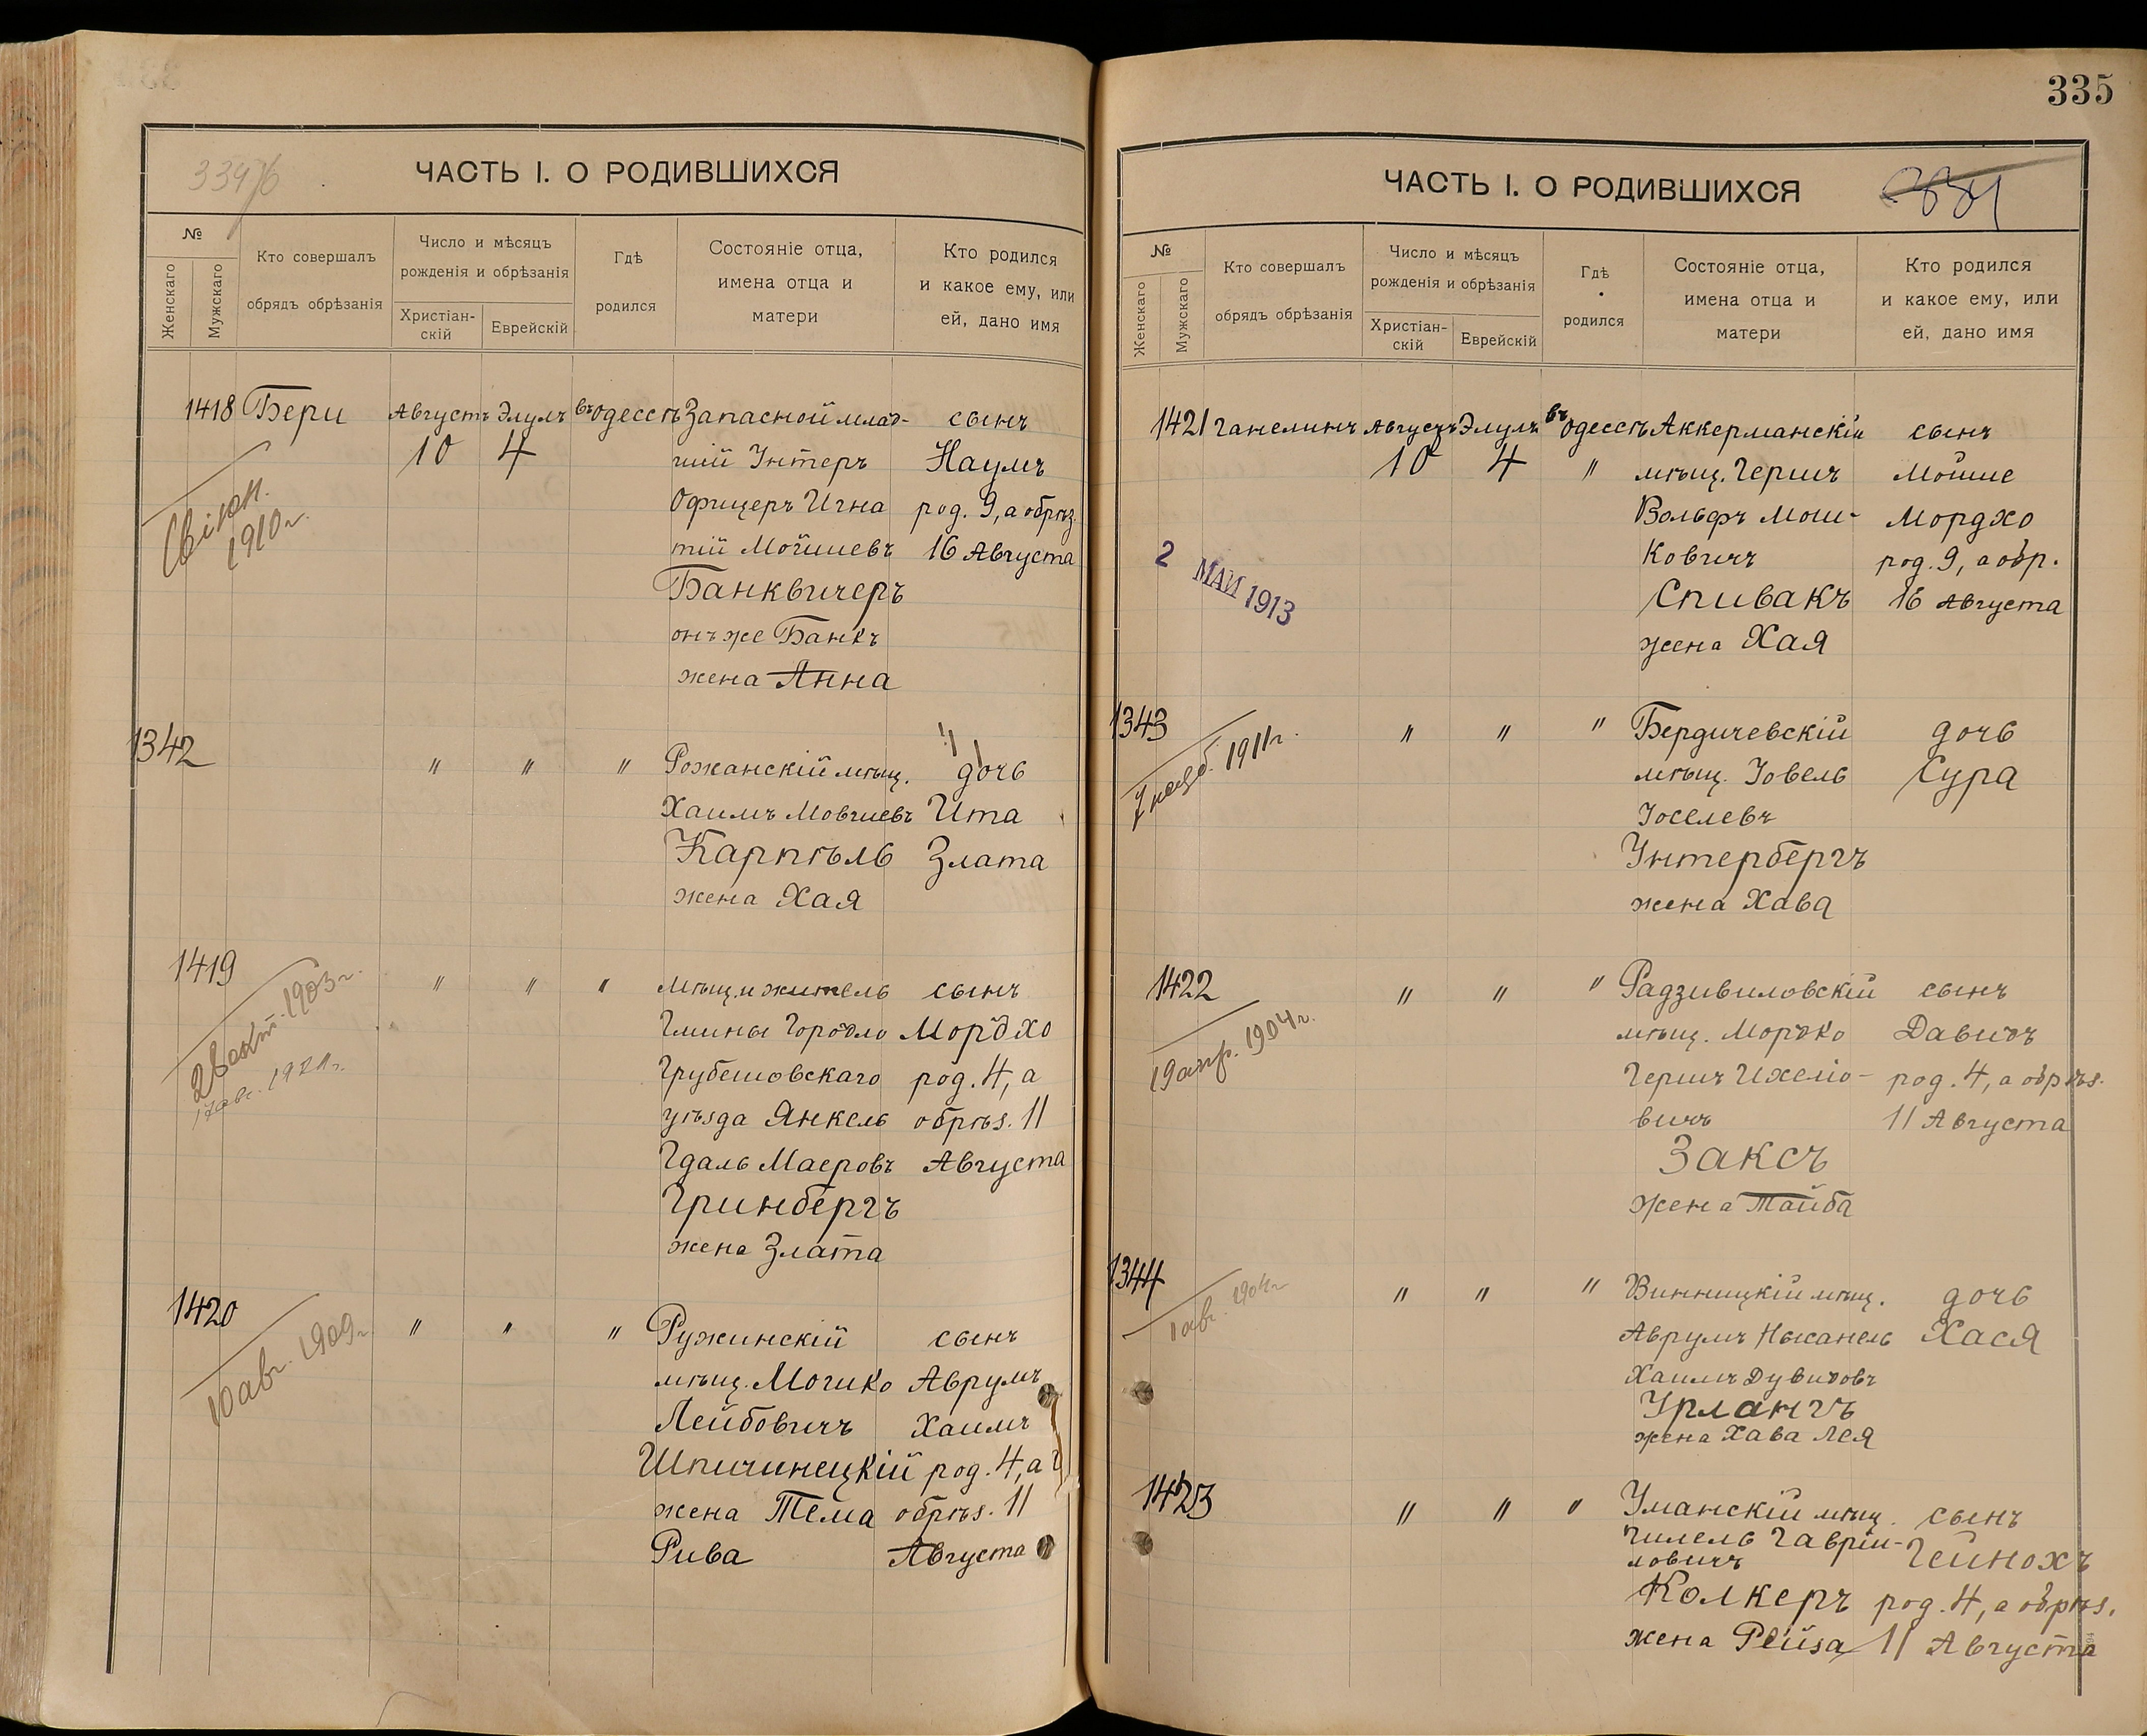 335
ЧАСТЬ I. О РОДИВШИХСЯ
№
Женскаго
Мужскаго
Кто совершалъ
обрядъ обрѣзанія
Число и мѣсяцъ
рожденія и обрѣзанія
Христіан-
скій
Еврейскій
Гдѣ
родился
Состояніе отца,
имена отца и
матери
Кто родился
и какое ему, или
ей, дано имя
1418 Бери Августъ Элулъ въ Одессѣ Запасной млад- сынъ
10 4 шій Унтеръ Наумъ
Офицеръ Игна род. 9, а обрѣз.
тій Мойшевъ 16 Августа
Банквичеръ
онъ же Банкъ
жена Анна
1910 г.
1342 " " " Рожанскій мѣщ. дочь
Хаимъ Мовшевъ Ита
Карпѣль Злата
жена Хая
1419 " " " мѣщ. и житель сынъ
Гмины Городло Мордхо
Грубешовскаго род. 4, а
уѣзда Янкель обрѣз. 11
Гдаль Маеровъ Августа
Гринбергъ
жена Злата
1903 г.
1420 " " " Ружинскій сынъ
мѣщ. Мошко Аврумъ
Лейбовичъ Хаимъ
Шпичинецкій род. 4, а
жена Тема обрѣз. 11
Рива Августа
10 авг. 1909 г.
ЧАСТЬ I. О РОДИВШИХСЯ
334
№
Женскаго
Мужскаго
Кто совершалъ
обрядъ обрѣзанія
Число и мѣсяцъ
рожденія и обрѣзанія
Христіан-
скій
Еврейскій
Гдѣ
родился
Состояніе отца,
имена отца и
матери
Кто родился
и какое ему, или
ей, дано имя
1421 Ганелинъ Августъ Элулъ въ Одессѣ Аккерманскій сынъ
10 4 " мѣщ. Гершъ Мойше
Вольфъ Мош- Мордхо
ковичъ род. 9, а обр.
Спивакъ 16 Августа
жена Хая
2 МАИ 1913
1343 " " " Бердичевскій дочь
мѣщ. Іовель Сура
Іоселевъ
Унтербергъ
жена Хава
1911 г.
1422 " " " Радзивиловскій сынъ
мѣщ. Моръко Давидъ
Гершъ Ихеліо- род. 4, а обрѣз.
вичъ 11 Августа
Заксъ
жена Тайба
19 апр. 1904 г.
1344 " " " Винницкій мѣщ. дочь
Аврумъ Нысанель Хася
Хаимъ Дувидовъ
Урлангъ
жена Хава Лея
1423 " " " Уманскій мѣщ. сынъ
Гилель Гаврій-
ловичъ Гейнохъ
Колкеръ род. 4, а обрѣз.
жена Рейза 11 Августа